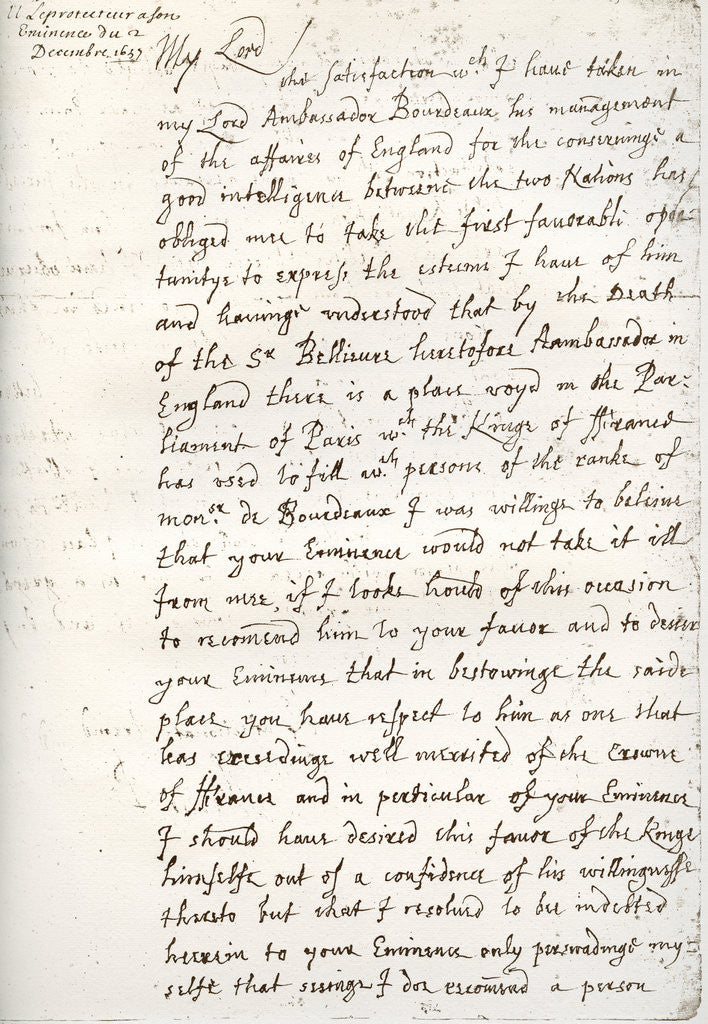 Le protecteur a son
Eminence du 2
Decembre 1657
My Lord
the satisfaction wch I have taken in
my Lord Ambassador Bourdeaux his management
of the affaires of England for the conservinge a
good intelligence betweene the two Nations has
obliged mee to take the first favorable opor-
tunitye to express the esteeme I have of him
and havinge understood that by the Death
of the Sr Bellieure heretofore Aambassador in
England there is a place voyd in the Par-
liament of Paris wch the Kinge of ffrance
has used to fill wth persons of the ranke of
monsr de Bourdeaux I was willinge to beleive
that your Eminence would not take it ill
from mee, if I tooke hould of this occasion
to recomend him to your favor and to desier
your Eminence that in bestowinge the saide
place you have respect to him as one that
has exceedinge well merrited of the Crowne
of ffrance and in perticular of your Eminence
I should have desired this favor of the Kinge
himselfe out of a confidence of his willingnesse
thereto but that I resolved to bee indebted
herein to your Eminence only perswadinge my-
selfe that seeinge I doe recomend a person